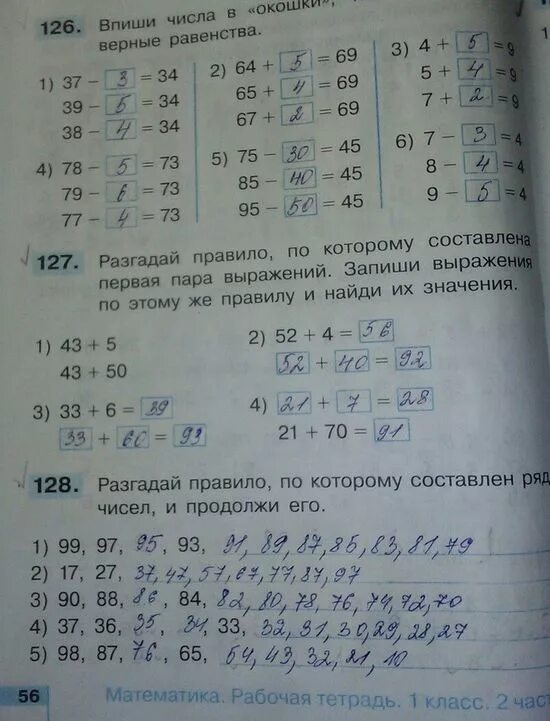 126. Впиши числа в «окошки»,
верные равенства.
1) 37 – 3 = 34
39 – 5 = 34
38 – 4 = 34
2) 64 + 5 = 69
65 + 4 = 69
67 + 2 = 69
3) 4 + 5 = 9
5 + 4 = 9
7 + 2 = 9
4) 78 – 5 = 73
79 – 6 = 73
77 – 4 = 73
5) 75 – 30 = 45
85 – 40 = 45
95 – 50 = 45
6) 7 – 3 = 4
8 – 4 = 4
9 – 5 = 4
127. Разгадай правило, по которому составлена
первая пара выражений. Запиши выражения
по этому же правилу и найди их значения.
1) 43 + 5
43 + 50
2) 52 + 4 = 56
52 + 40 = 92
3) 33 + 6 = 39
33 + 60 = 93
4) 21 + 7 = 28
21 + 70 = 91
128. Разгадай правило, по которому составлен ряд
чисел, и продолжи его.
1) 99, 97, 95, 93, 91, 89, 87, 85, 83, 81, 79
2) 17, 27, 37, 47, 57, 67, 77, 87, 97
3) 90, 88, 86, 84, 82, 80, 78, 76, 74, 72, 70
4) 37, 36, 35, 34, 33, 32, 31, 30, 29, 28, 27
5) 98, 87, 76, 65, 54, 43, 32, 21, 10
56 Математика. Рабочая тетрадь. 1 класс. 2 част